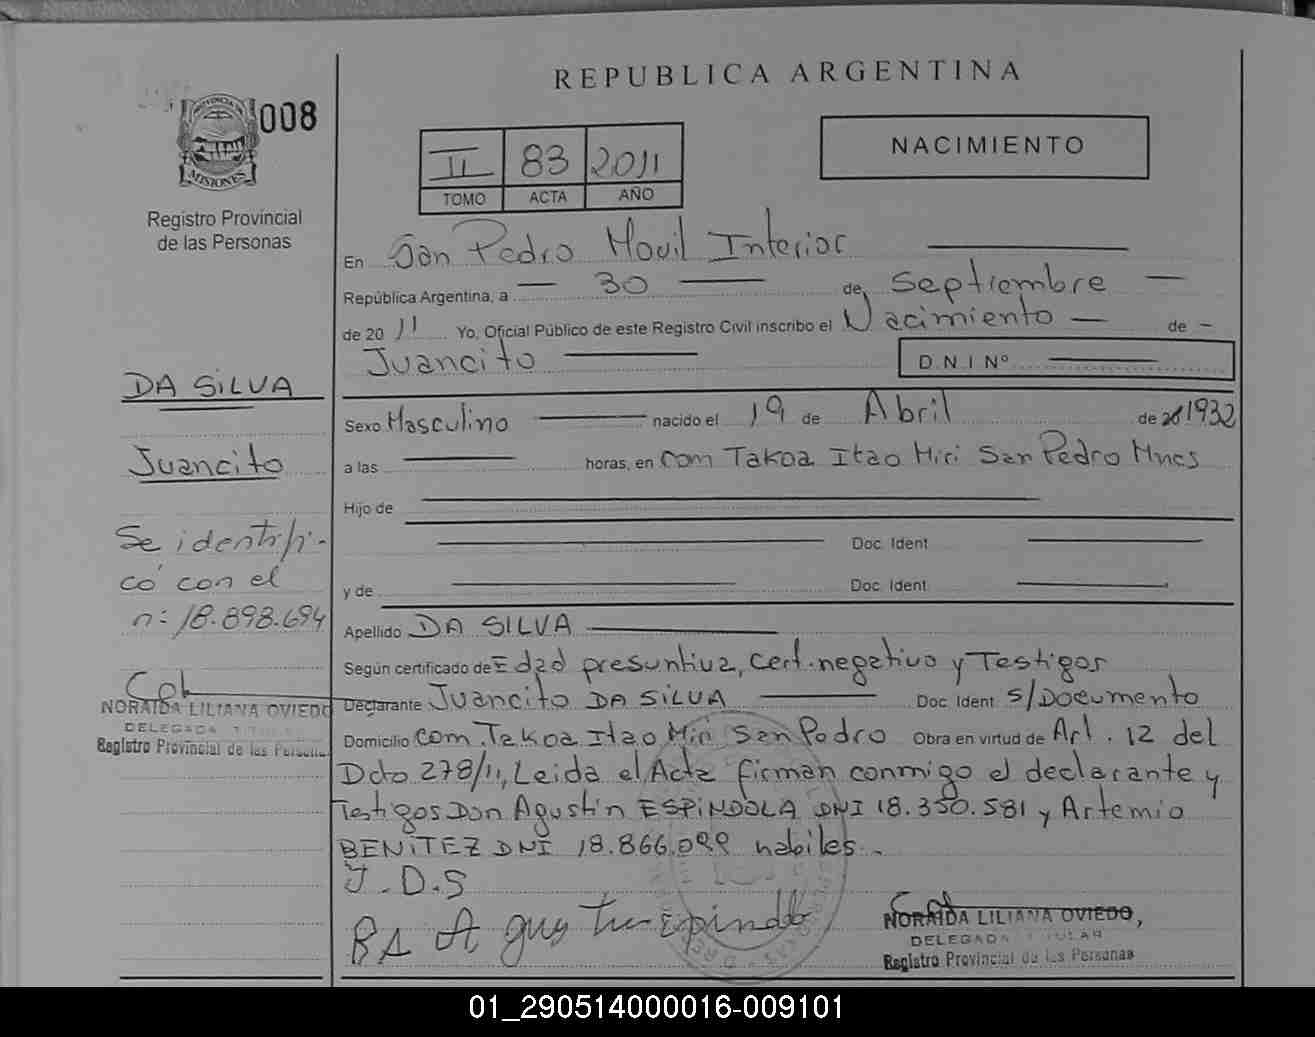 REPUBLICA ARGENTINA
PROVINCIA DE
MISIONES
008
Registro Provincial
de las Personas
II 83 2011
TOMO ACTA AÑO
NACIMIENTO
En San Pedro Movil Interior
República Argentina, a 30 de Septiembre
de 20 11 Yo, Oficial Público de este Registro Civil inscribo el Nacimiento de
Juancito D.N.I Nº
DA SILVA
Juancito
Se identifi-
có con el
n: 18.898.694
NORAIDA LILIANA OVIEDO
DELEGADA TITULAR
Registro Provincial de las Personas
Sexo Masculino nacido el 19 de Abril de 1932
a las horas, en Com Takoa Itao Miri San Pedro Mnes
Hijo de
Doc. Ident
y de Doc. Ident
Apellido DA SILVA
Según certificado de Edad presuntiva, Cert. negativo y Testigos
Declarante Juancito DA SILVA Doc. Ident S/Documento
Domicilio Com. Takoa Itao Miri San Pedro Obra en virtud de Art. 12 del
Dcto 278/11, Leida el Acta firman conmigo el declarante y
Testigos Don Agustín ESPINDOLA DNI 18.350.581 y Artemio
BENITEZ DNI 18.866.099 habiles.
J.D.S
BA Agustin Espindola
NORAIDA LILIANA OVIEDO,
DELEGADA TITULAR
Registro Provincial de las Personas
01_290514000016-009101